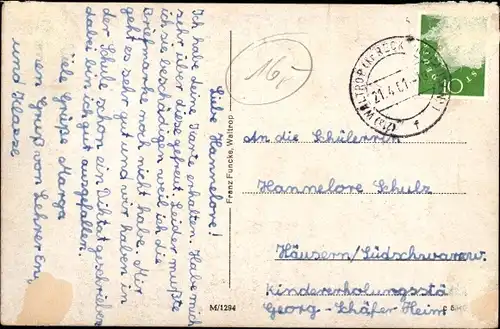 Liebe Hannelore!
Ich habe deine Karte erhalten. Habe mich
sehr über diese gefreut. Leider mußte
ich sie beschädigen weil ich die
Briefmarke noch nicht habe. Mir
geht es sehr gut und wir haben in
der Schule schon ein Diktat geschrieben
dabei bin ich gut ausgefallen.
Viele Grüße Marga
einen Gruß von Lehrer
und Klasse
Franz Funcke, Waltrop
M/1294
16
WALTROP
21.4.61
f
10
An die Schülerin
Hannelore Schulz
Häusern/Südschwarzw.
Kindererholungsstä
Georg-Schäfer Heim